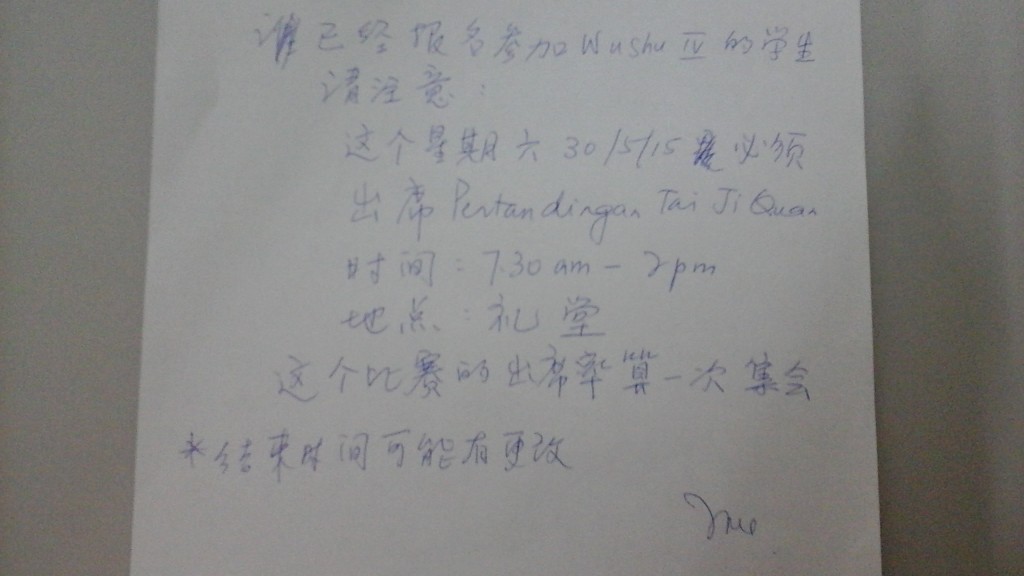 谁已经报名参加Wushu IV 的学生
请注意:
这个星期六 30/5/15 必须
出席 Pertandingan Tai Ji Quan
时间: 7.30 am - 2 pm
地点: 礼堂
这个比赛的出席率算一次集会
*结束时间可能有更改